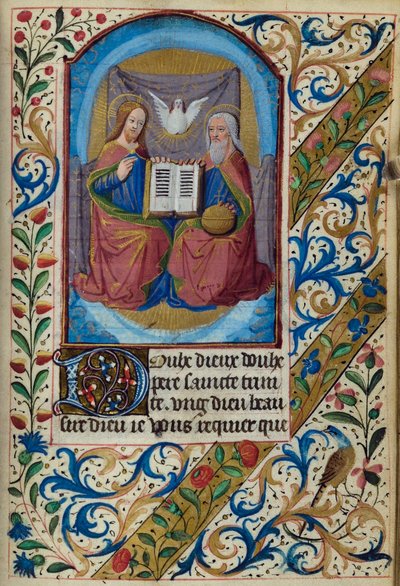 Doulz dieux doulz
pere saincte trini
te. vng dieu beau
sire dieu ie vous requier que